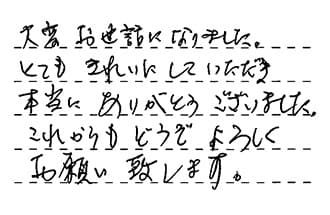 大変お世話になりました。
とてもきれいにしていただき
本当にありがとうございました。
これからもどうぞよろしく
お願い致します。